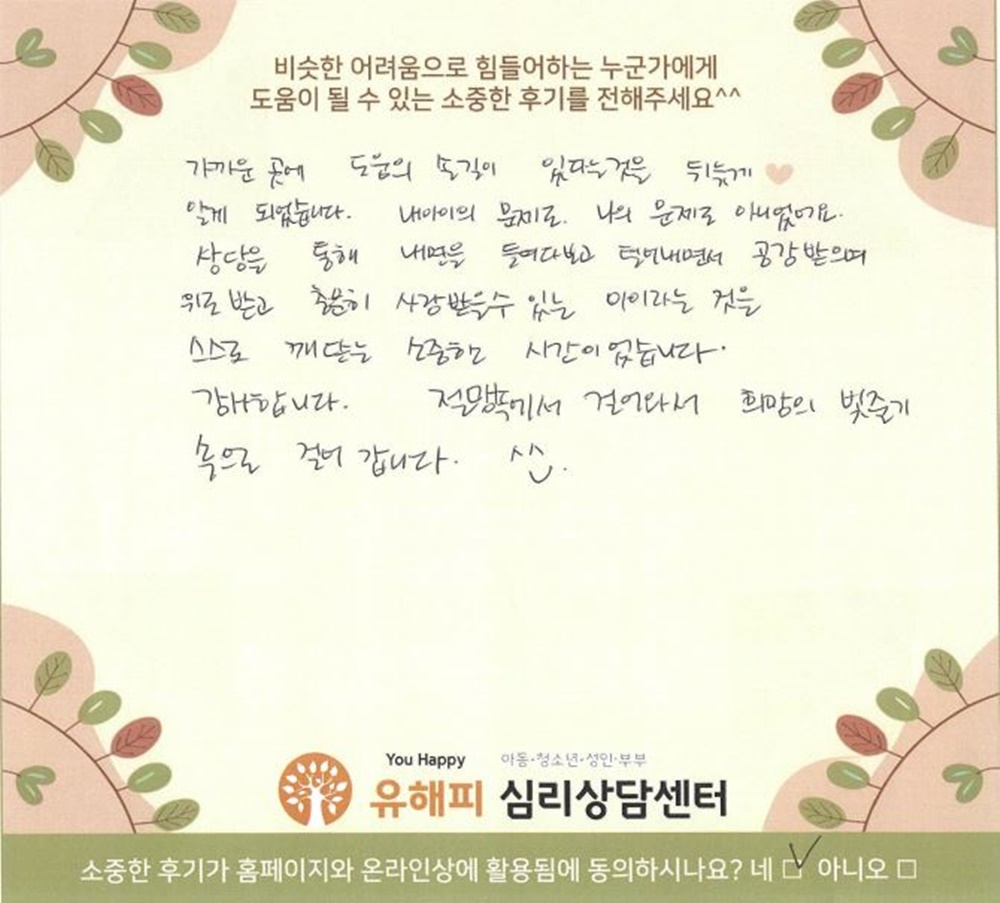 비슷한 어려움으로 힘들어하는 누군가에게
도움이 될 수 있는 소중한 후기를 전해주세요^^
가까운 곳에 도움의 손길이 있다는것을 뒤늦게
알게 되었습니다. 내아이의 문제로. 나의 문제로 아니었어요.
상담을 통해 내면을 들여다보고 털어내면서 공감받으며
위로받고 충분히 사랑받을수 있는 아이라는 것을
스스로 깨닫는 소중한 시간이었습니다.
감사합니다. 절망속에서 걸어와서 희망의 빛줄기
속으로 걸어 갑니다. ^^
You Happy 아동·청소년·성인·부부
유해피 심리상담센터
소중한 후기가 홈페이지와 온라인상에 활용됨에 동의하시나요? 네 ☑ 아니오 □